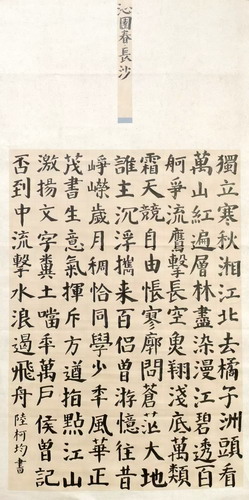 沁園春長沙
獨立寒秋湘江北去橘子洲頭看
萬山紅遍層林盡染漫江碧透百
舸爭流鷹擊長空魚翔淺底萬類
霜天競自由悵寥廓問蒼茫大地
誰主沉浮攜来百侶曾游憶往昔
崢嶸歲月稠恰同學少年風華正
茂書生意氣揮斥方遒指點江山
激揚文字糞土噹年萬戶侯曾記
否到中流擊水浪遏飛舟 陸柯均書